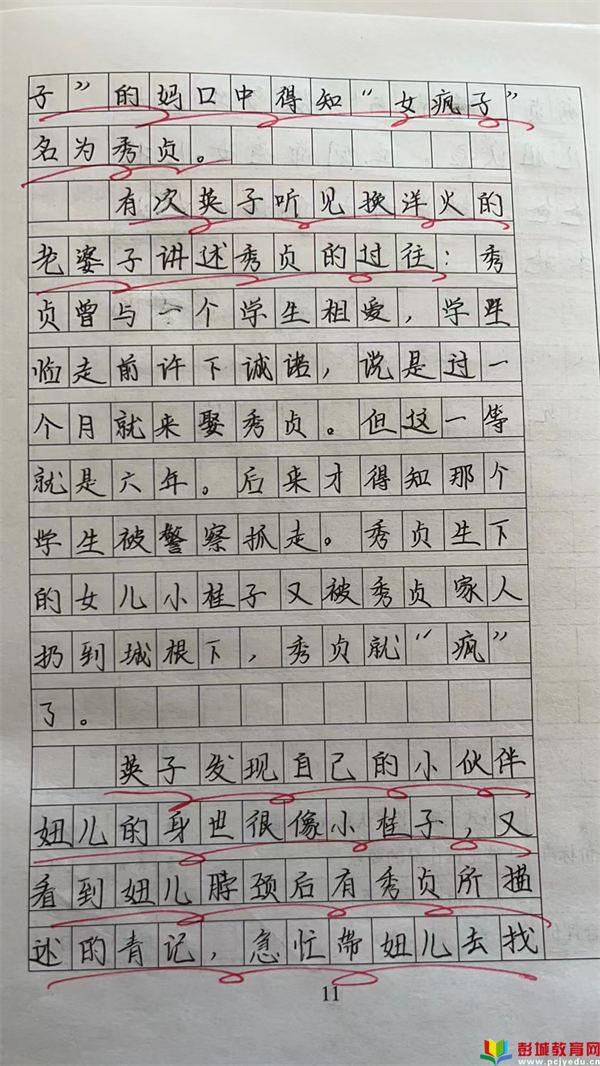 子”的妈口中得知“女疯子”
名为秀贞。
有次英子听见换洋火的
老婆子讲述秀贞的过往：秀
贞曾与一个学生相爱，学生
临走前许下诚诺，说是过一
个月就来娶秀贞。但这一等
就是六年。后来才得知那个
学生被警察抓走。秀贞生下
的女儿小桂子又被秀贞家人
扔到城根下，秀贞就“疯”
了。
英子发现自己的小伙伴
妞儿的身世很像小桂子，又
看到妞儿脖颈后有秀贞所描
述的青记，急忙带妞儿去找
11
彭城教育网
www.pcjyedu.cn